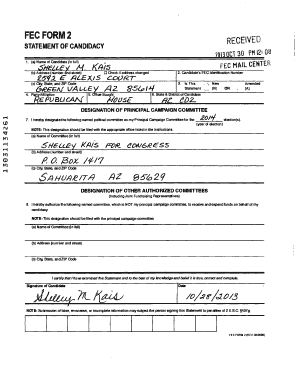 FEC FORM 2
STATEMENT OF CANDIDACY
RECEIVED
2013 OCT 30 PM 12: 08
FEC MAIL CENTER
1. (a) Name of Candidate (in full)
SHELLEY M. KAIS
(b) Address (number and street) Check if address changed
2. Candidate's FEC Identification Number
8592 E ALEXIS COURT
(c) City, State, and ZIP Code
3. Is This Statement New (N) OR Amended (A)
GREEN VALLEY AZ 85614
4. Party Affiliation 5. Office Sought 6. State & District of Candidate
REPUBLICAN HOUSE AZ CD2
DESIGNATION OF PRINCIPAL CAMPAIGN COMMITTEE
7. I hereby designate the following named political committee as my Principal Campaign Committee for the 2014 election(s).
(year of election)
NOTE: This designation should be filed with the appropriate office listed in the instructions.
(a) Name of Committee (in full)
SHELLEY KAIS FOR CONGRESS
(b) Address (number and street)
P.O. BOX 1417
(c) City, State, and ZIP Code
SAHUARITA AZ 85629
DESIGNATION OF OTHER AUTHORIZED COMMITTEES
(Including Joint Fundraising Representatives)
8. I hereby authorize the following named committee, which is NOT my principal campaign committee, to receive and expend funds on behalf of my candidacy.
NOTE: This designation should be filed with the principal campaign committee.
(a) Name of Committee (in full)
(b) Address (number and street)
(c) City, State, and ZIP Code
I certify that I have examined this Statement and to the best of my knowledge and belief it is true, correct and complete.
Signature of Candidate Date
Shelley M Kais 10/28/2013
NOTE: Submission of false, erroneous, or incomplete information may subject the person signing this Statement to penalties of 2 U.S.C. §437g.
FEC FORM 2
13031134261